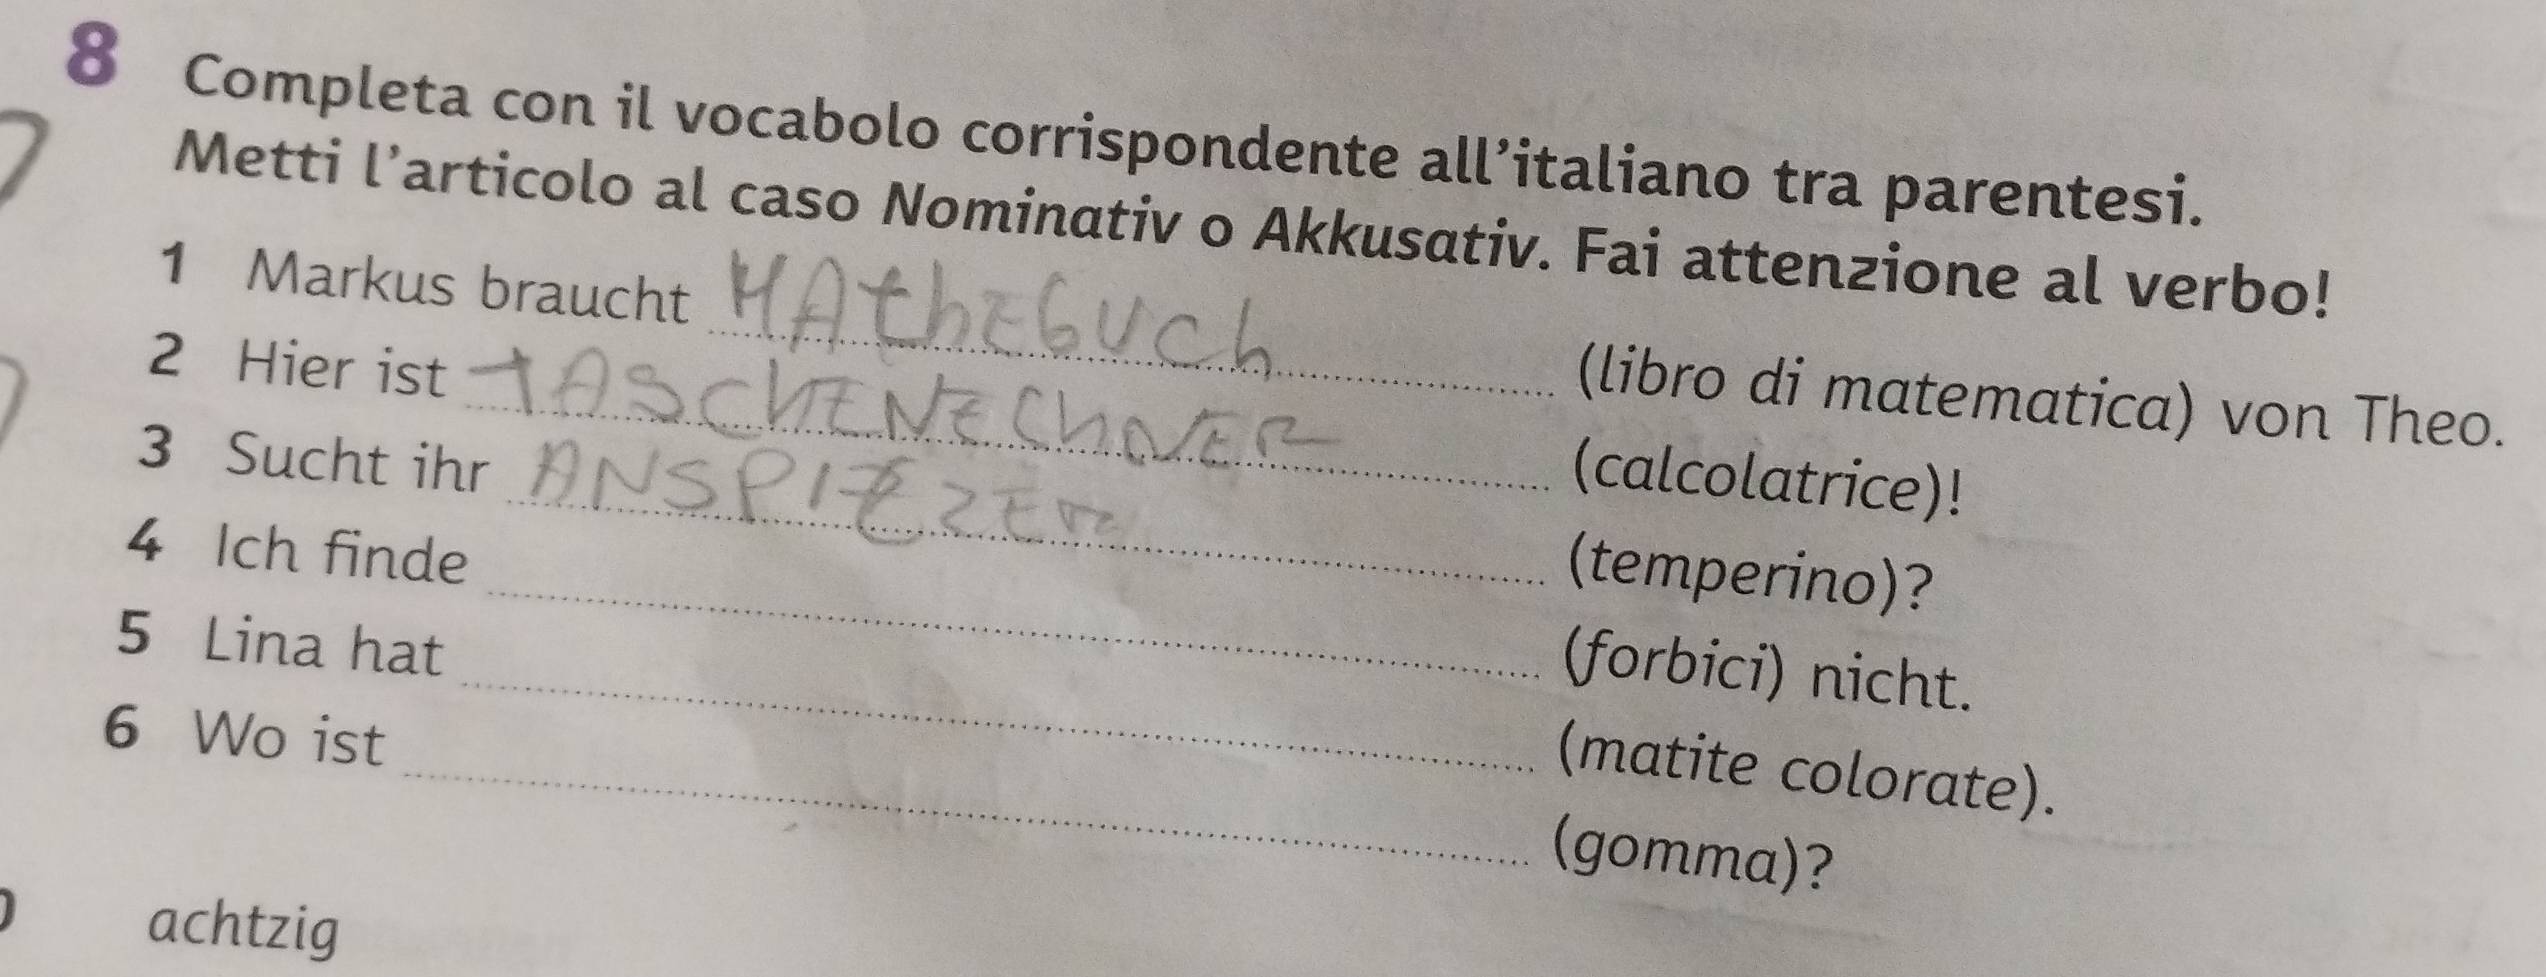 8 Completa con il vocabolo corrispondente all'italiano tra parentesi.
Metti l'articolo al caso Nominativ o Akkusativ. Fai attenzione al verbo!
1 Markus braucht MAthEbUCh (libro di matematica) von Theo.
2 Hier ist TASCHENECHNER (calcolatrice)!
3 Sucht ihr ANSPITZER (temperino)?
4 Ich finde (forbici) nicht.
5 Lina hat (matite colorate).
6 Wo ist (gomma)?
achtzig